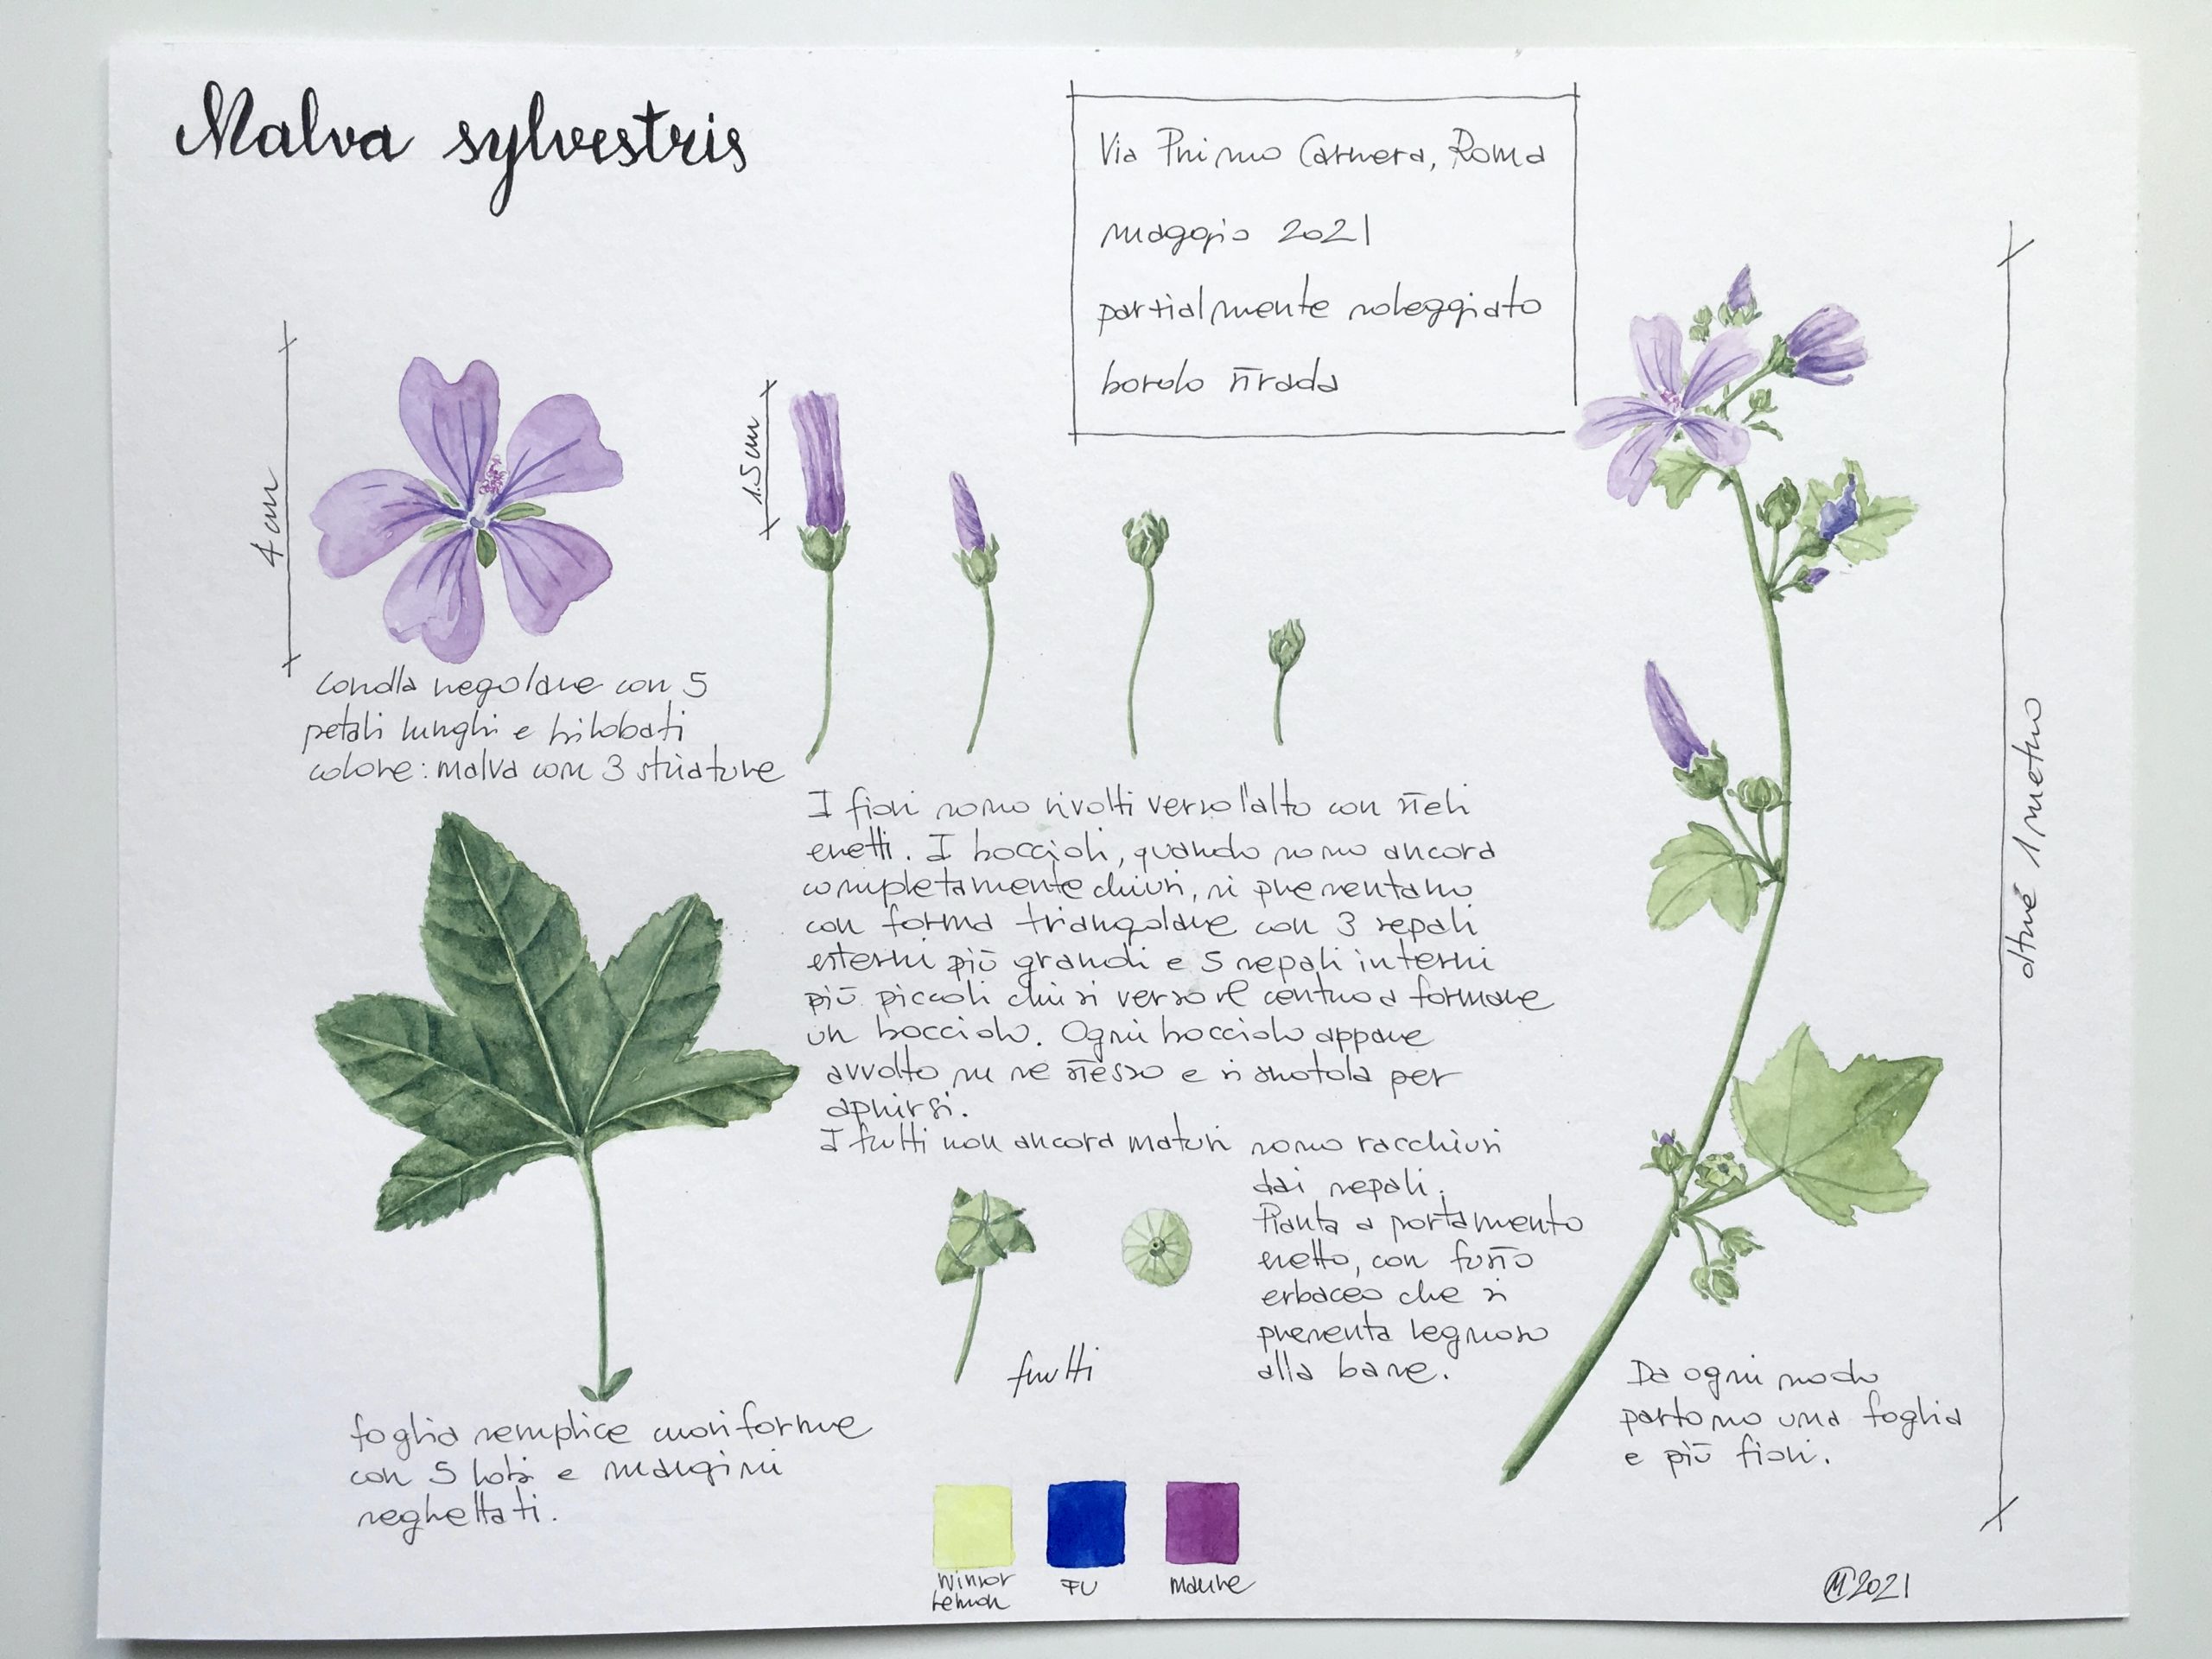 Malva sylvestris
Via Primo Carnera, Roma
maggio 2021
parzialmente soleggiato
bordo strada
4 cm
1.5 cm
Corolla regolare con 5
petali lunghi e bilobati
colore: malva con 3 striature
I fiori sono rivolti verso l'alto con steli
eretti. I boccioli, quando sono ancora
completamente chiusi, si presentano
con forma triangolare con 3 sepali
esterni più grandi e 5 sepali interni
più piccoli chiusi verso il centro a formare
un bocciolo. Ogni bocciolo appare
avvolto su se stesso e si srotola per
aprirsi.
I frutti non ancora maturi sono racchiusi
dai sepali.
Pianta a portamento
eretto, con fusto
erbaceo che si
presenta legnoso
alla base.
frutti
foglia semplice cuoriforme
con 5 lobi e margini
seghettati.
Da ogni nodo
partono una foglia
e più fiori.
oltre 1 metro
Winsor
Lemon
FU
Mauve
M 2021